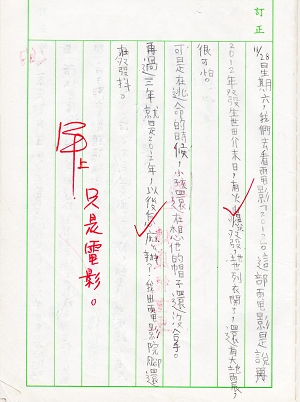 訂正
11/28日生期六,我們去看電影「2012」這部電影是說
2012年發生世界末日,有火爆發,地列開了,還有大地震,
很可怕。
可是在逃命的時候,小孩還在想他的帽子還沒拿。
再過三年就是2012年,以後怎麼辦?我出電影院腳還
在發抖。
只是電影。